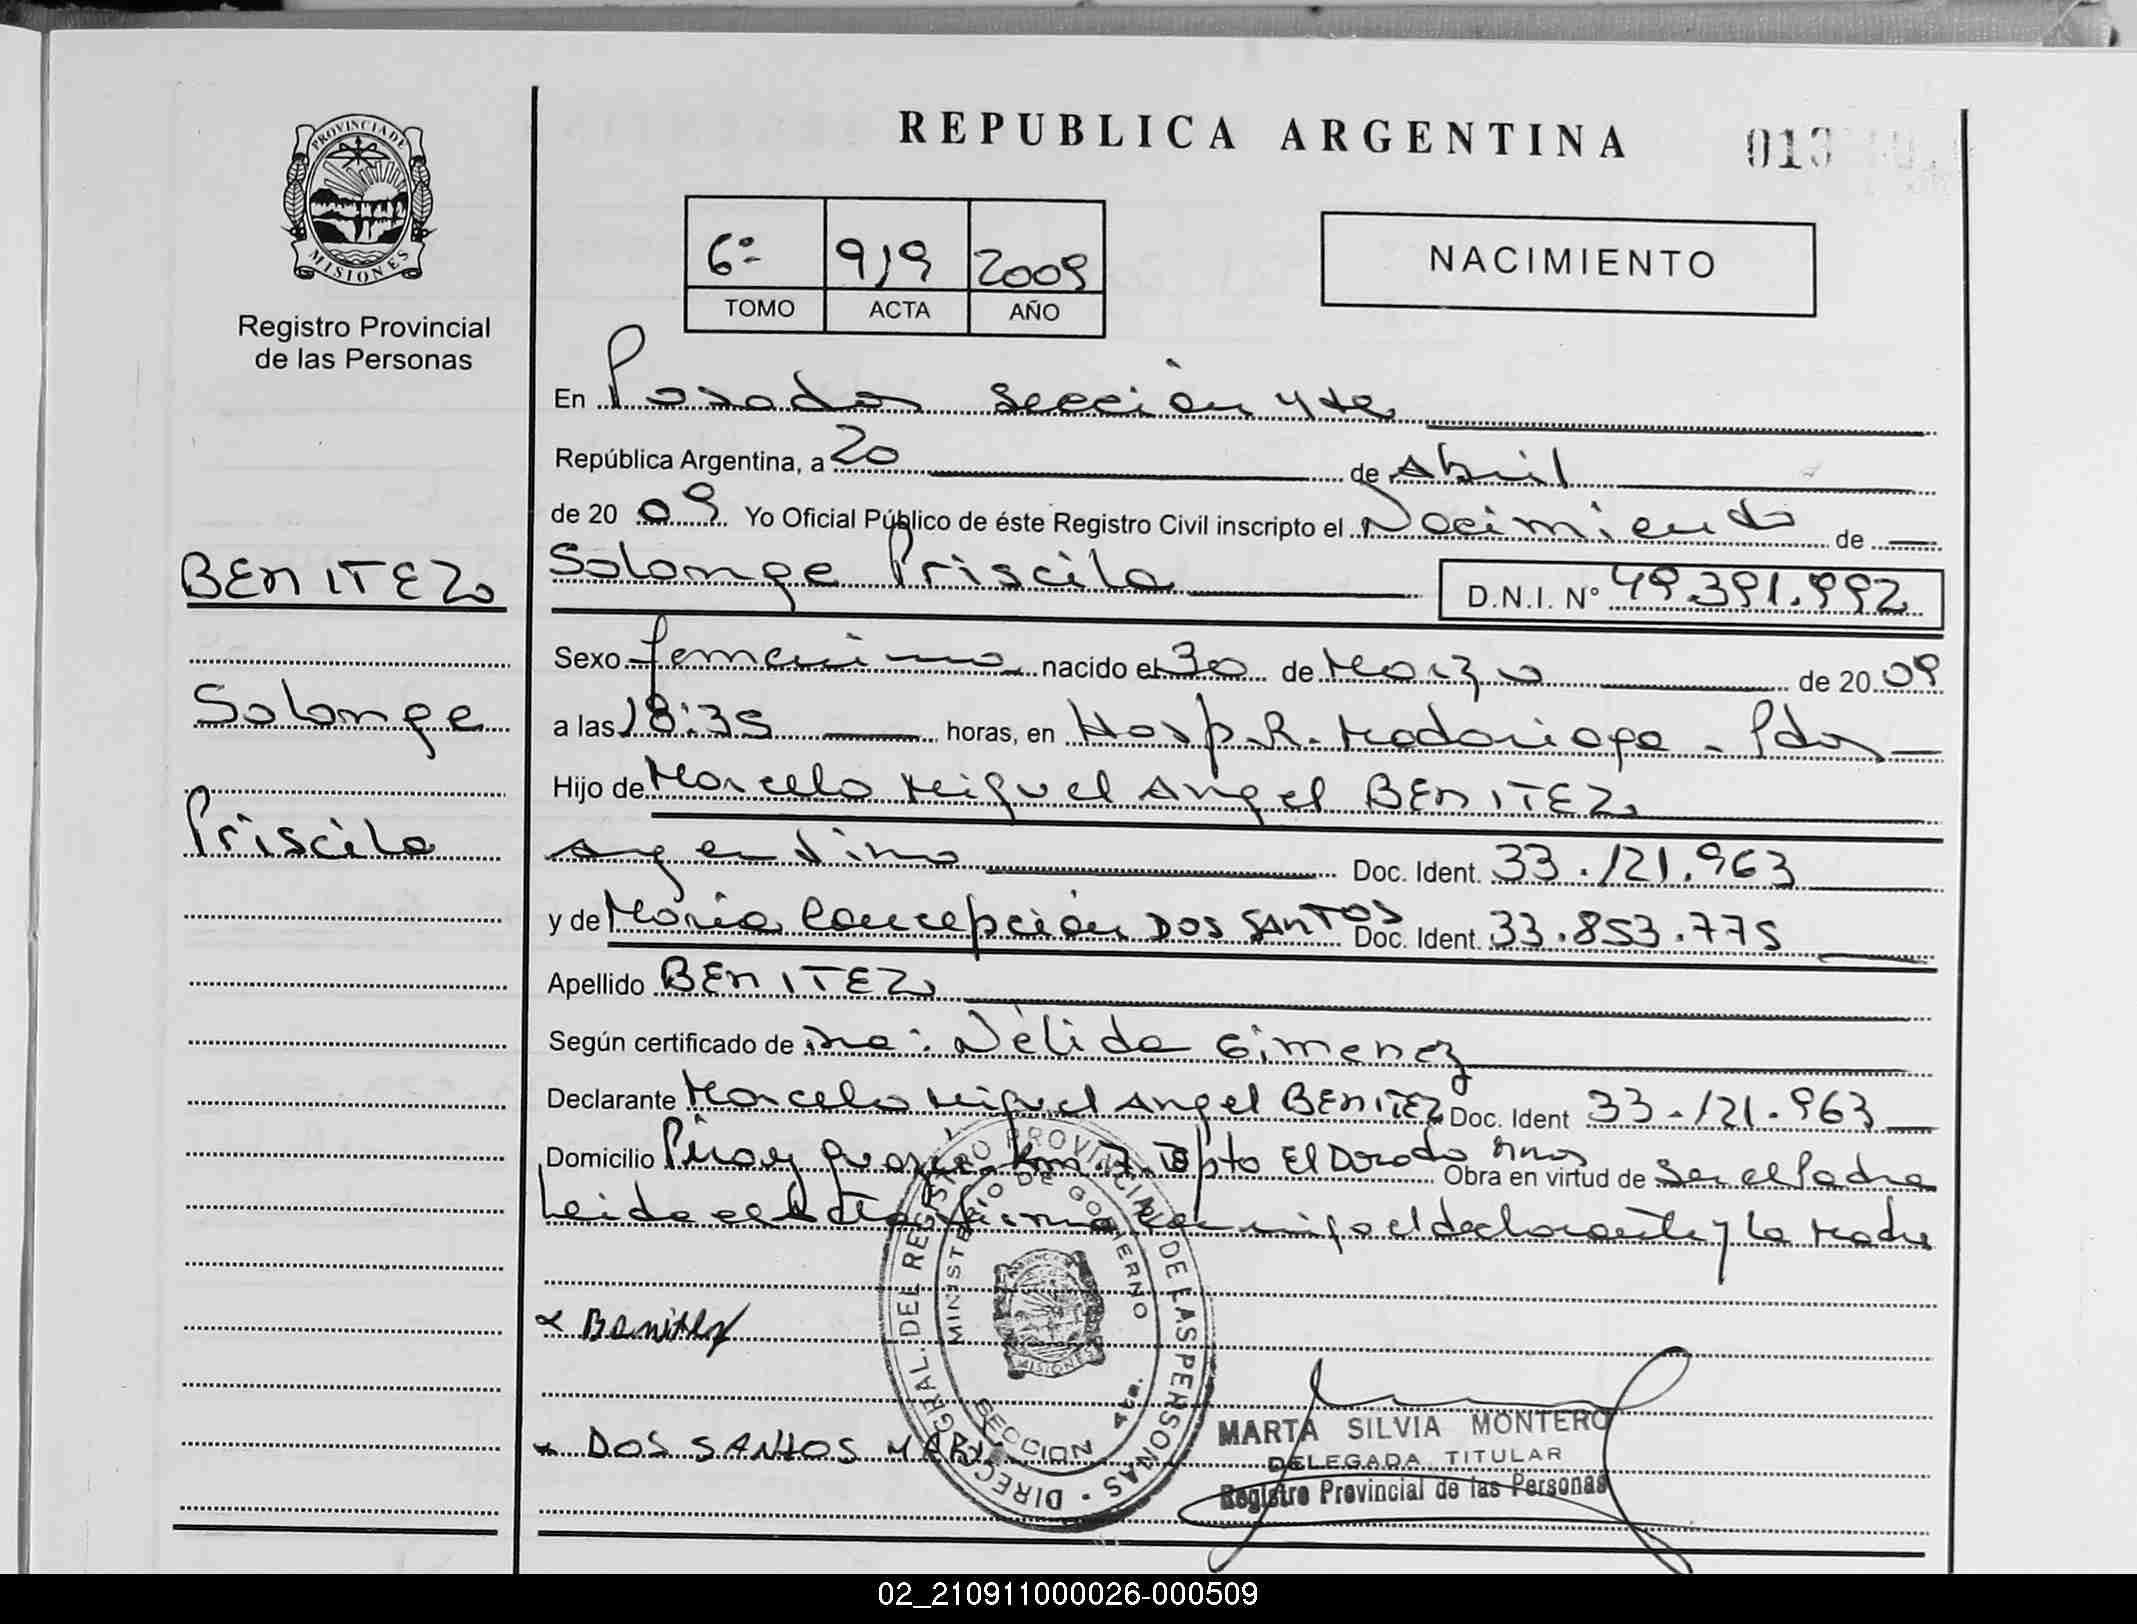 PROVINCIA DE
MISIONES
Registro Provincial
de las Personas
REPUBLICA ARGENTINA
013
6º 919 2009
TOMO ACTA AÑO
NACIMIENTO
En Posadas Sección 4ta
República Argentina, a 20 de Abril
de 20 09 Yo Oficial Público de éste Registro Civil inscripto el Nacimiento de
BENITEZ
Solange Priscila D.N.I. Nº 49.391.992
Sexo femenino nacido el 30 de Marzo de 20 09
Solange
a las 18:35 horas, en Hosp. R. Madariaga - Pdas
Hijo de Marcelo Miguel Angel BENITEZ
Priscila
Argentino Doc. Ident. 33.121.963
y de María Concepción DOS SANTOS Doc. Ident. 33.853.775
Apellido BENITEZ
Según certificado de Dra: Nélida Gimenez
Declarante Marcelo Miguel Angel BENITEZ Doc. Ident 33.121.963
Domicilio Piray guazú. Km. 7. Dpto El Dorado Mnes Obra en virtud de Ser el Padre
Leida el Acta firma conmigo el declarante y la Madre
Benitez
DOS SANTOS MARI
DIREC. GRAL. DEL REGISTRO PROVINCIAL DE LAS PERSONAS
MINISTERIO DE GOBIERNO
MISIONES
SECCION 4ta.
MARTA SILVIA MONTERO
DELEGADA TITULAR
Registro Provincial de las Personas
02_210911000026-000509